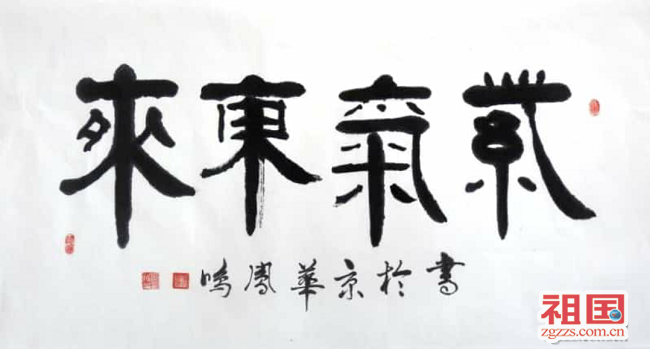 紫氣東來
書於京華鳳鳴
祖国
zgzzs.com.cn